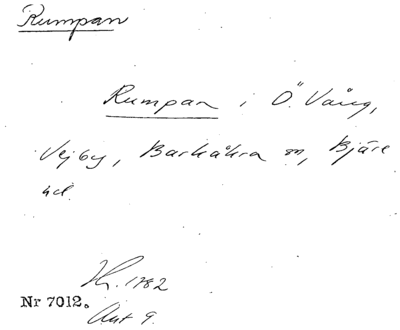 Rumpan
Rumpan i Ö. Vång,
Vejby, Barkåkra sn, Bjäre
hd.
Kr. 1782
Nr 7012.
Akt 9.